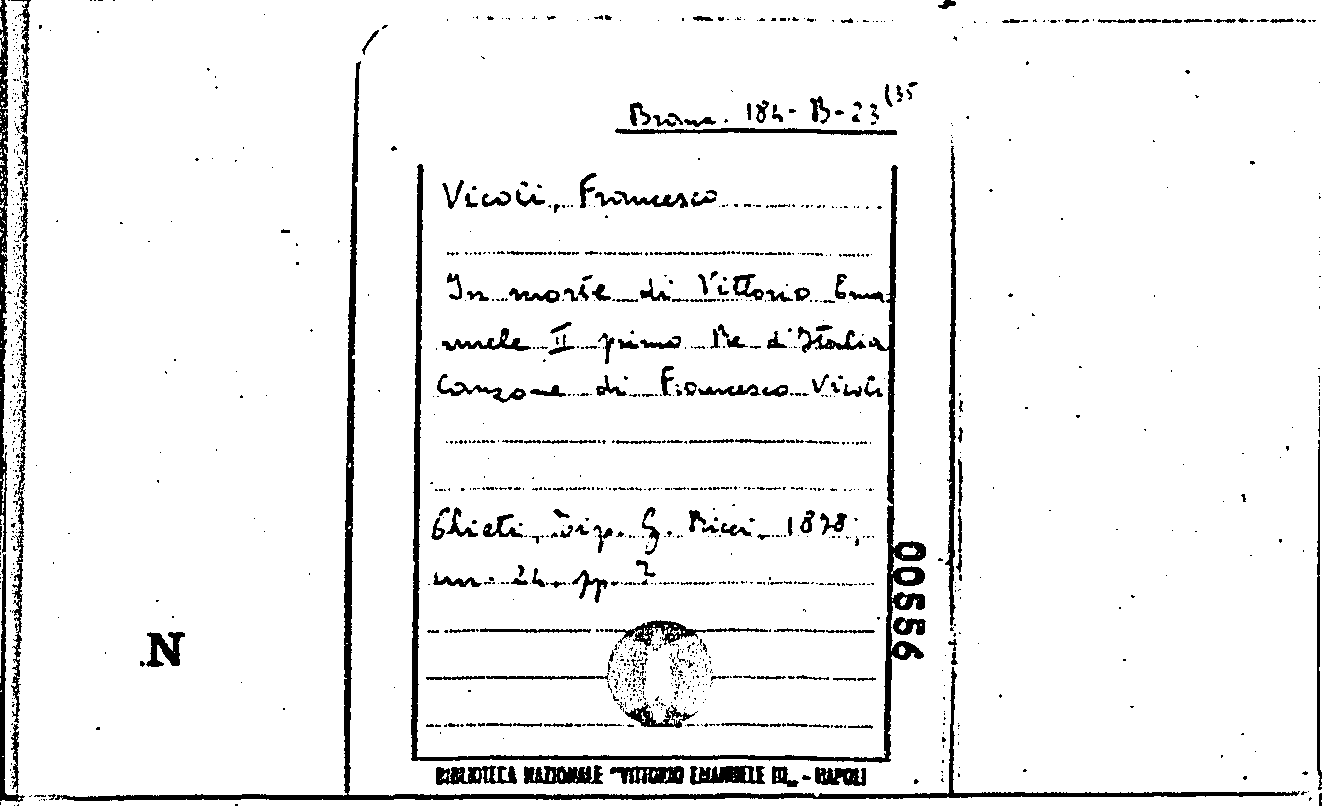 Branc. 184-B-23(35
Vicoli, Francesco
In morte di Vittorio Ema
nuele II primo Re d'Italia
Canzone di Francesco Vicoli
Chieti, Tip. G. Ricci, 1878,
in- 24. pp. 7
00556
N
BIBLIOTECA NAZIONALE "VITTORIO EMANUELE III" - NAPOLI